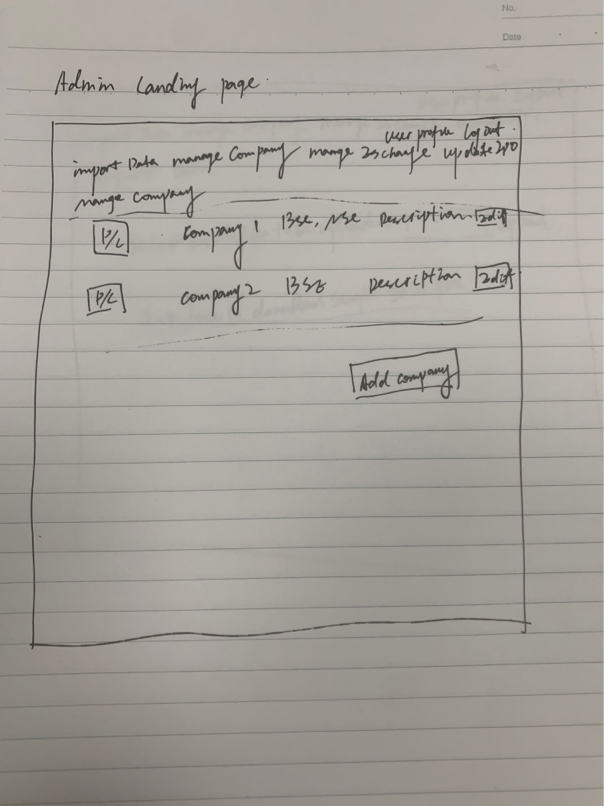 No.
Date
Admin Landing page.
user profile Log out.
import Data manage Company mange Exchange update IPO
mange company
P/L Company 1 BSE, NSE Description Edit
P/L Company 2 BSE Description Edit
Add company